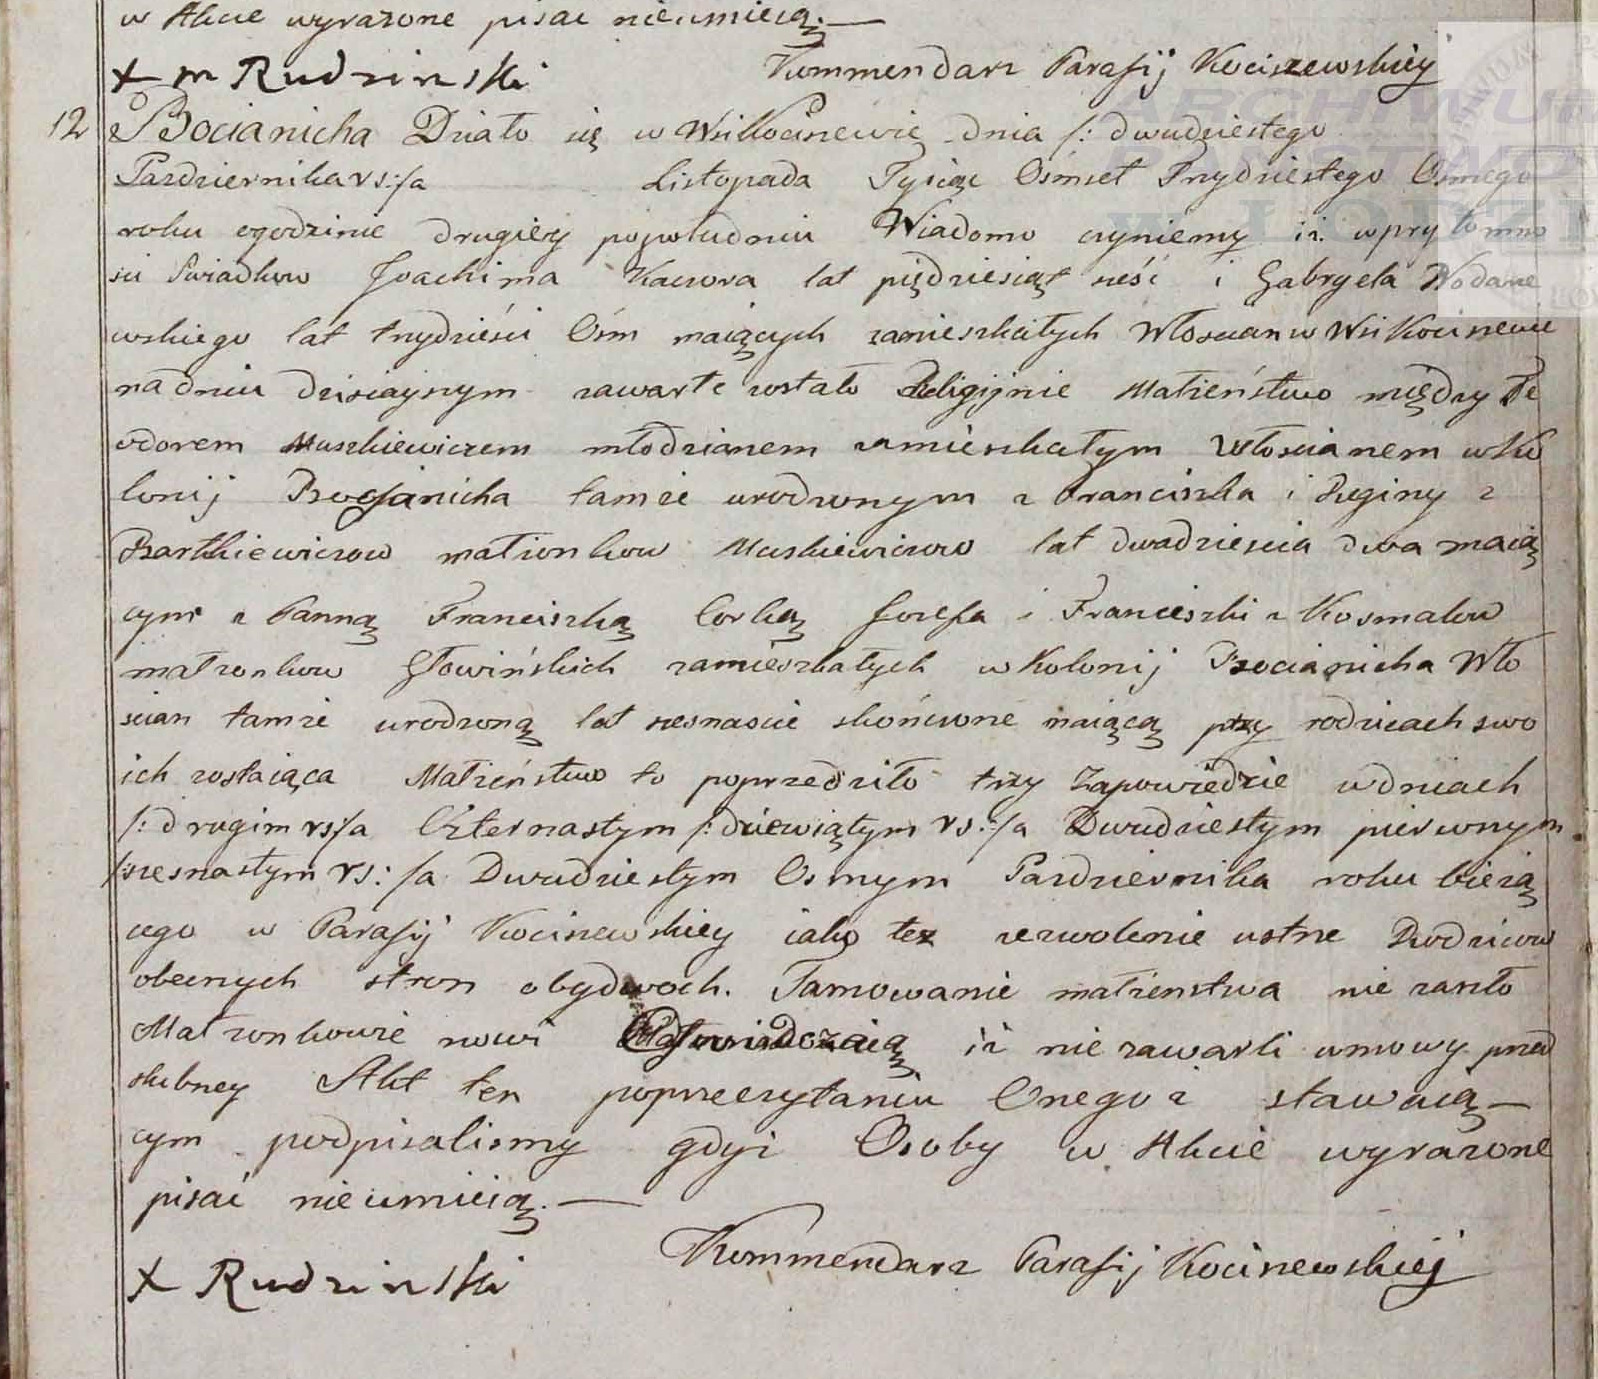 w Akcie wyrażone pisac nieumieią. —
+ m Rudzinski Kommendarz Parafij Kociszewskiey
12 Bocianicha Działo się w Wsi Kociszewie dnia /: dwudziestego
Pazdziernika v s:/a Listopada Tysiąc Ośmset Trzydziestego Osmego
roku ogodzinie drugiey popołudniu Wiadomo czyniemy iż wprzytomno
sci Swiadkow Joachima Kaczora lat pięDziesiąt sześć i Gabryela Wodane
wskiego lat trzydzieści Ośm maiących zamieszkałych Włoscian w Wsi Kociszewie
na dniu dzisiayszym zawarte zostało Religijnie Małżeństwo między Te
odorem Muszkiewiczem młodzianem zamieszkałym Włoscianem w Ko
lonij Bocianicha tamże urodzonym z Franciszka i Reginy z
Bartkiewiczow małżonkow Muszkiewiczow lat dwadziescia dwa maią
cym a Panną Franciszką Corką Jozefa i Franciszki z Kosmalow
małzonkow Głowińskich zamieszkałych w Kolonij Bocianicha Wło
scian tamże urodzoną lat szesnascie skończone maiącą przy rodzicach swo
ich zostaiąca Małżeństwo to poprzedziło trzy Zapowiedzie w dniach
/: drugim vs:/a Czternastym /: dziewiątym vs:/a Dwudziestym pierwszym
/: szesnastym vs:/a Dwudziestym Osmym Pazdziernika roku bieżą
cego w Parafij Kociszewskiey iako tez zezwolenie ustne Rodzicow
obecnych stron obydwoch. Tamowanie małżenstwa nie zaszło
Małzonkowie nowi Oswiadczaią iż nie zawarli umowy przed
slubney Akt ten poprzeczytaniu Onego z stawaią —
cym podpisalismy gdyż Osoby w Akcie wyrażone
pisać nieumieią. —
+ Rudzinski Kommendarz Parafij Kociszewskiej